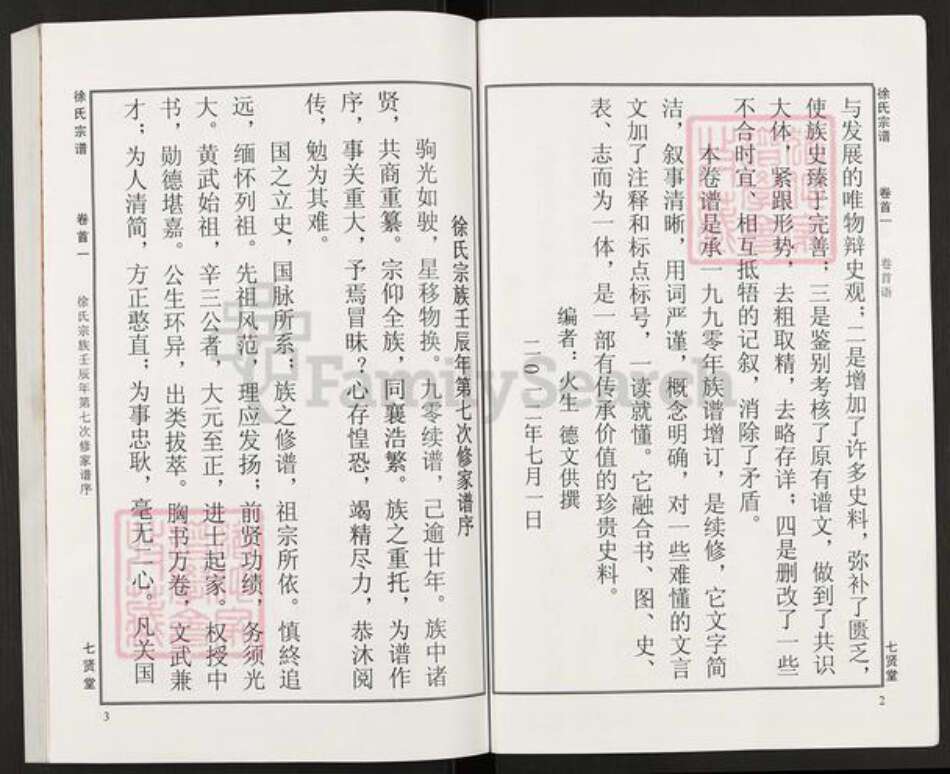 徐氏宗谱
卷首一
卷首语
七贤堂
2
与发展的唯物辩史观；二是增加了许多史料，弥补了匮乏，
使族史臻于完善；三是鉴别考核了原有谱文，做到了共识
大体，紧跟形势，去粗取精，去略存详；四是删改了一些
不合时宜、相互抵牾的记叙，消除了矛盾。
本卷谱是承一九九零年族谱增订，是续修，它文字简
洁，叙事清晰，用词严谨，概念明确，对一些难懂的文言
文加了注释和标点标号，一读就懂。它融合书、图、史、
表、志而为一体，是一部有传承价值的珍贵史料。
编者：火生 德文供撰
二〇一二年七月一日
徐氏宗族壬辰年第七次修家谱序
驹光如驶，星移物换。九零续谱，己逾廿年。族中诸
贤，共商重纂。宗仰全族，同襄浩繁。族之重托，为谱作
序，事关重大，予焉冒昧？心存惶恐，竭精尽力，恭沐阅
传，勉为其难。
国之立史，国脉所系；族之修谱，祖宗所依。慎終追
远，缅怀列祖。先祖风范，理应发扬；前贤功绩，务须光
大。黄武始祖，辛三公者，大元至正，进士起家。权授中
书，勋德堪嘉。公生环异，出类拔萃。胸书万卷，文武兼
才；为人清简，方正憨直；为事忠耿，毫无二心。凡关国
徐氏宗谱
卷首一
徐氏宗族壬辰年第七次修家谱序
七贤堂
3
FamilySearch